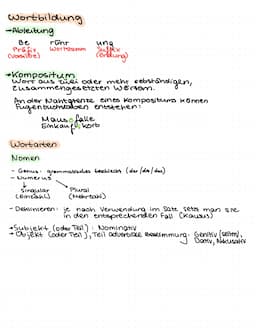 Wortbildung
→Ableitung
Be rühr ung
Präfix Wortstamm Suffix
(Vorsilbe) (Endung)
→Kompositum
Wort aus zwei oder mehr selbständigen,
zusammengesetzten Wörtern.
An der Nahtgrenze eines Kompositums können
Fugenbuchstaben entstehen:
Mausefalle
Einkaufskorb
Wortarten
Nomen
- Genus: grammatikalisches Geschlecht (der/die/das)
- Numerus
Singular Plural
(Einzahl) (Mehrzahl)
- Deklinieren: je nach Verwendung im Satz setzt man sie
in den entsprechenden Fall (Kasus)
→Subjekt (oder Teil): Nominativ
→Objekt (oder Teil), Teil adverbiale Bestimmung: Genitiv (selten),
Dativ, Akkusativ